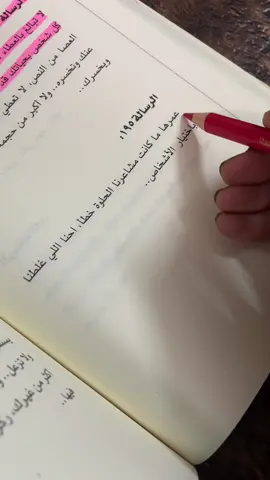 الرسالة
لا تبالغ بالعطاء
كل شخص بحياتك قد
العصا من النص. لا تعطي
عنك وتخسره.. ولا أكبر من حجمه
ويخسرك..
الرسالة ١٩٥:
عمرها ما كانت مشاعرنا الحلوة خطأ، احنا اللي غلطنا
اختيار الأشخاص..
ولا تزعل..
أكثر من غيرك،
فيها..